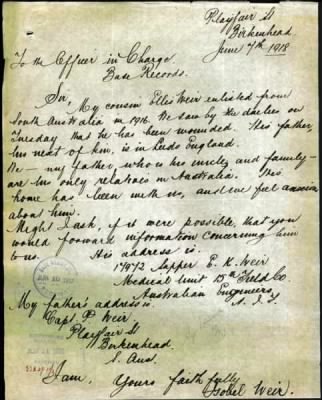 Playfair St
Birkenhead
June 7th 1918
To the Officer in Charge
Base Records.
Sir,
My cousin Ellis Weir enlisted from
South Australia in 1916. We saw by the dailies on
Tuesday that he has been wounded. His father,
his next of kin, is in Leeds England.
We — my father who is his uncle, and family —
are his only relatives in Australia. His
home has been with us, and we feel anxious
about him.
Might I ask, if it were possible, that you
would forward information concerning him
to us. His address is
Sapper E. K. Weir
Medical unit 15th Field Co
Australian Engineers
A. I. F.
My father's address is
Capt. P. Weir
Playfair St
Birkenhead
S. Aus.
I am, Yours faithfully
Isobel Weir.